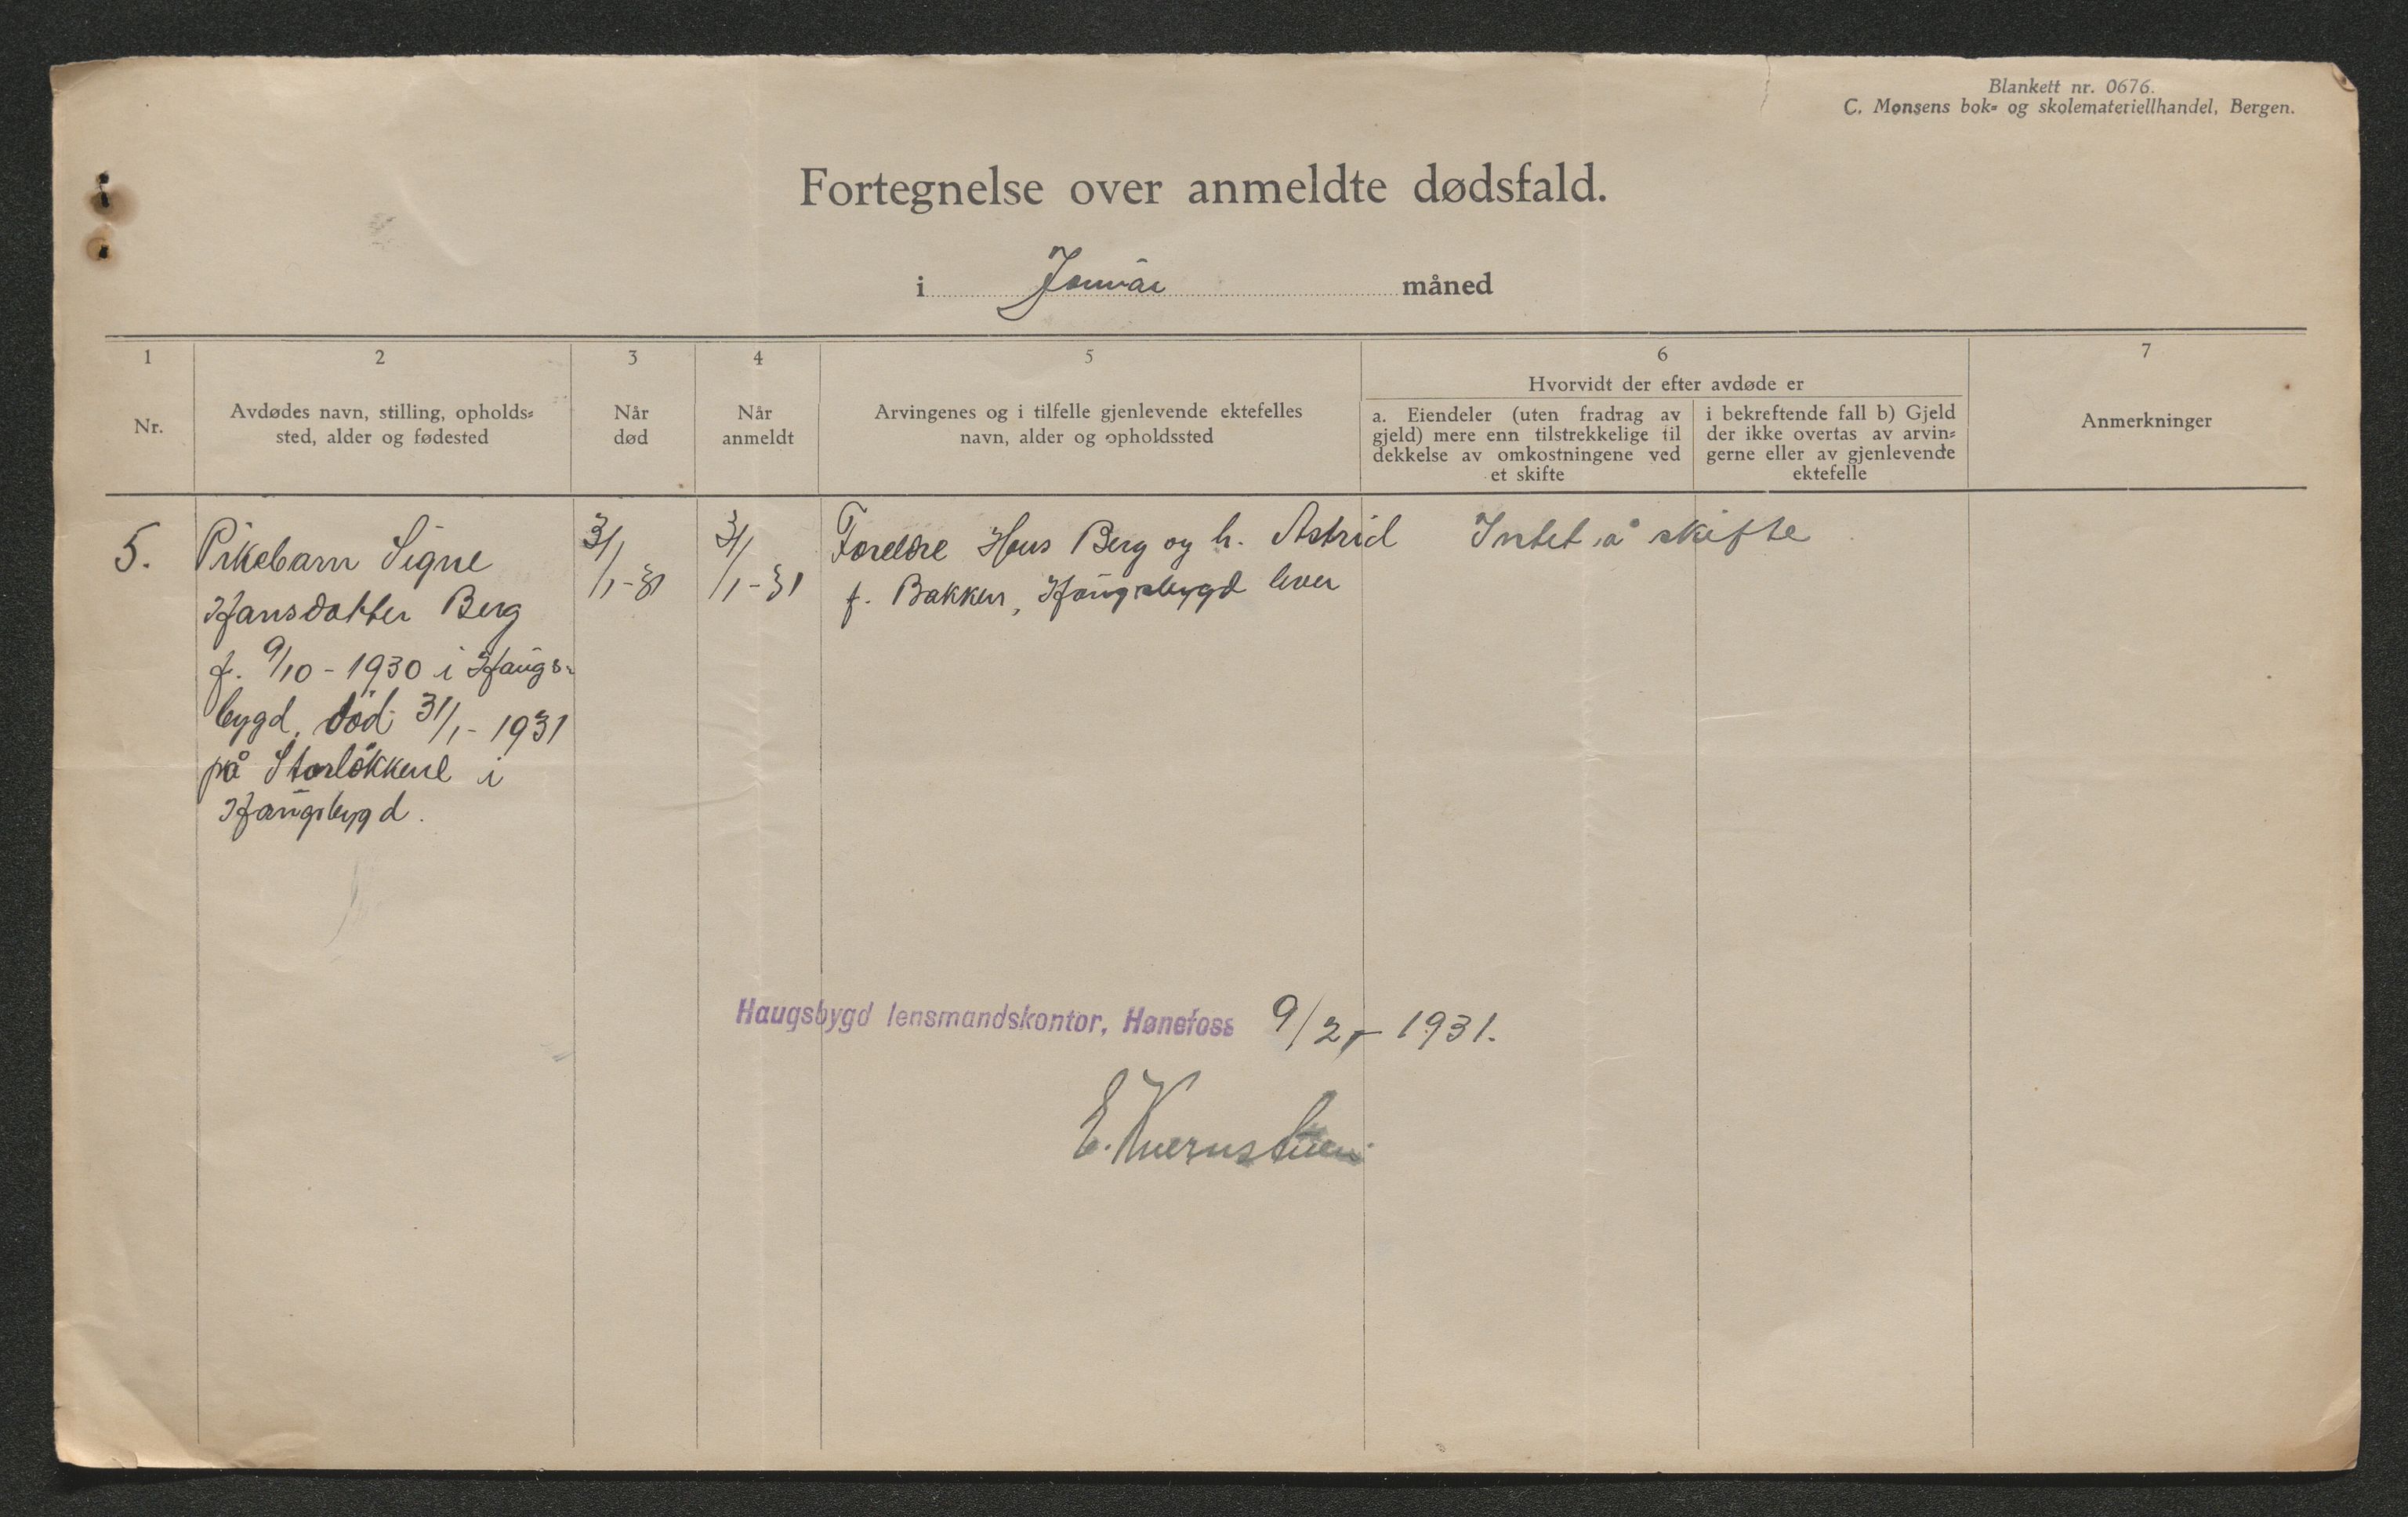 Blankett nr. 0676.
C. Monsens bok= og skolemateriellhandel, Bergen.
Fortegnelse over anmeldte dødsfald.
i Januar måned
1
Nr.
2
Avdødes navn, stilling, opholds=
sted, alder og fødested
3
Når
død
4
Når
anmeldt
5
Arvingenes og i tilfelle gjenlevende ektefelles
navn, alder og opholdssted
6
Hvorvidt der efter avdøde er
a. Eiendeler (uten fradrag av
gjeld) mere enn tilstrekkelige til
dekkelse av omkostningene ved
et skifte
i bekreftende fall b) Gjeld
der ikke overtas av arvin=
gerne eller av gjenlevende
ektefelle
7
Anmerkninger
5.
Pikebarn Signe
Hansdatter Berg
f. 9/10 - 1930 i Haugs-
bygd, död 31/1 - 1931
på Storlökkene i
Haugsbygd.
31/1 - 31
31/1 - 31
Foreldre Hans Berg og h. Astrid
f. Bakken, Haugsbygd lever
Intet å skifte
Haugsbygd lensmandskontor, Hønefoss 9/2 - 1931.
E. Kvernstuen